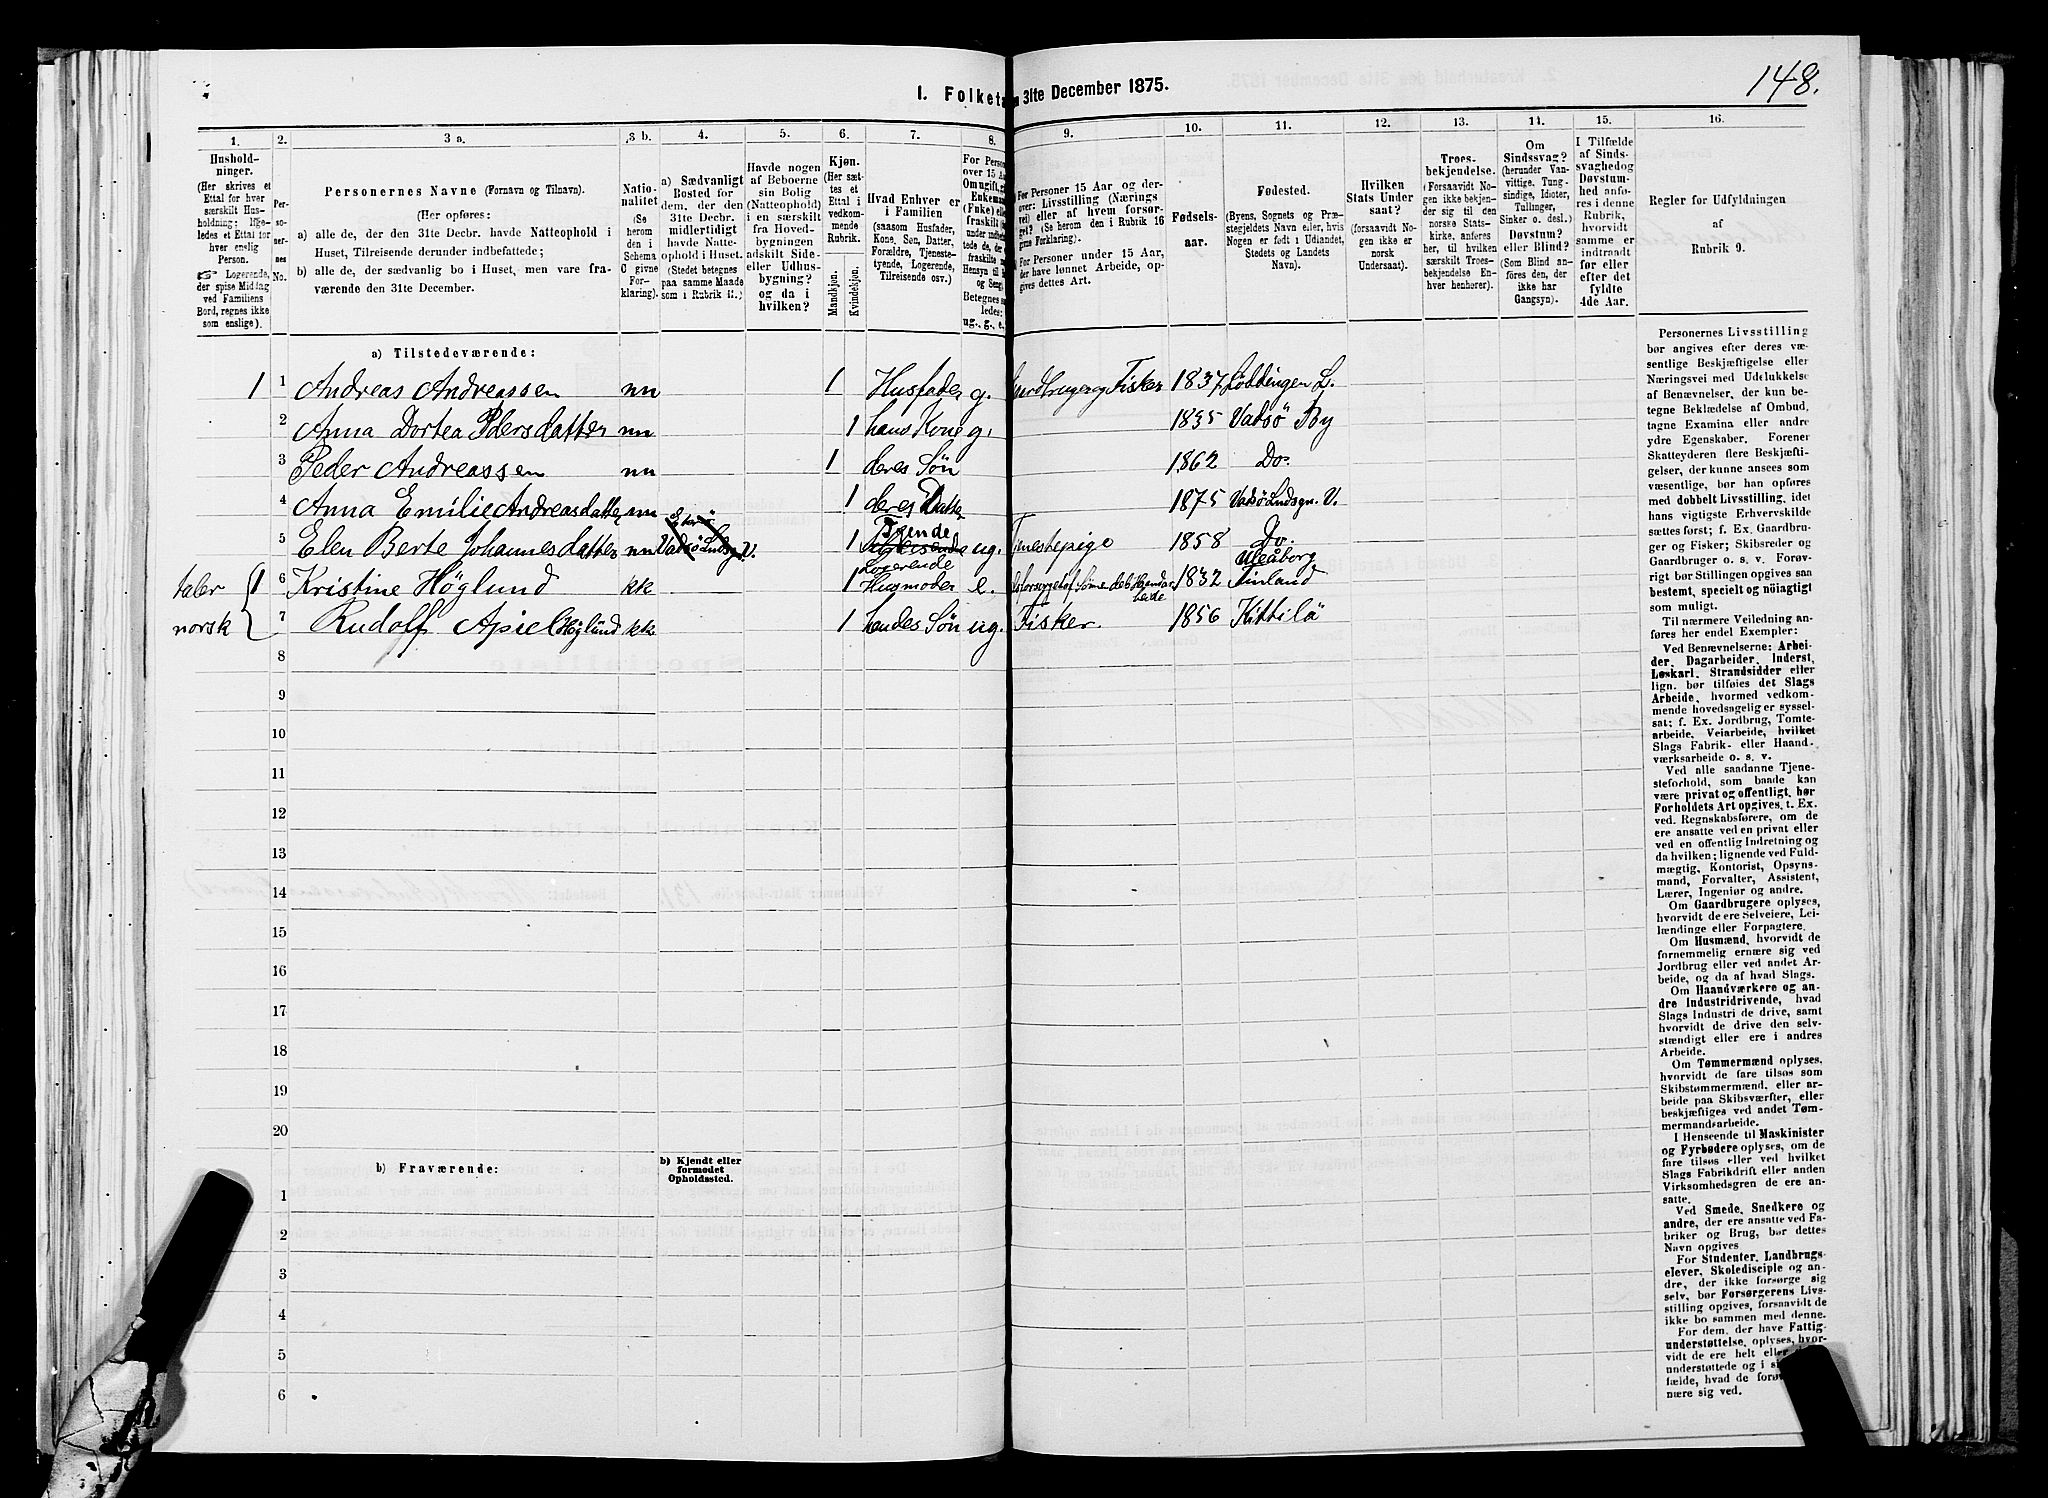 148.
I. Folketæ 31te December 1875.
1. 2. 3 a. 3 b. 4. 5. 6. 7. 8. 9. 10. 11. 12. 13. 14. 15. 16.
Hushold-
ninger.
(Her skrives et
Ettal for hver
særskilt Hus-
holdning; lige-
ledes et Ettal for
hver enslig
Person.
☞ Logerende,
der spise Middag
ved Familiens
Bord, regnes ikke
som enslige).
Per-
so-
ner-
nes
No.
Personernes Navne (Fornavn og Tilnavn).
(Her opføres:
a) alle de, der den 31te Decbr. havde Natteophold i
Huset, Tilreisende derunder indbefattede;
b) alle de, der sædvanlig bo i Huset, men vare fra-
værende den 31te December.
Natio-
nalitet
(Se
herom
den i
Schema
C givne
For-
klaring).
a) Sædvanligt
Bosted for
dem, der den
31te Decbr.
midlertidigt
havde Natte-
ophold i Huset.
(Stedet betegnes
paa samme Maade
som i Rubrik 11.)
Havde nogen
af Beboerne
sin Bolig
(Natteophold)
i en særskilt
fra Hoved-
bygningen
adskilt Side-
eller Udhus-
bygning?
og da i
hvilken?
Kjøn.
(Her sæt-
tes et
Ettal i
vedkom-
mende
Rubrik.
Mandkjøn.
Kvindekjøn.
Hvad Enhver er
i Familien
(saasom Husfader,
Kone, Søn, Datter,
Forældre, Tjeneste-
tyende, Logerende,
Tilreisende osv.)
For Person
over 15 Aar
Om ugift, gi
Enkeman
(Enke) elle
fraskilt
Betegnes saa
ledes:
ug., g., e.
For Personer 15 Aar og der-
over: Livsstilling (Nærings
vei) eller af hvem forsør-
get? (Se herom den i Rubrik 16
givne Forklaring).
For Personer under 15 Aar,
der have lønnet Arbeide, op-
gives dettes Art.
Fødsels-
aar.
Fødested.
(Byens, Sognets og Præ-
stegjeldets Navn eller, hvis
Nogen er født i Udlandet,
Stedets og Landets
Navn).
Hvilken
Stats Under
saat?
(forsaavidt No-
gen ikke er
norsk
Undersaat).
Troes-
bekjendelse.
(Forsaavidt No-
gen ikke bekjen-
der sig til den
norske Stats-
kirke, anføres
her, til hvilken
særskilt Troes-
bekjendelse En-
hver henhører).
Om
Sindssvag?
(herunder Van-
vittige, Tung-
sindige, Idioter,
Tullinger,
Sinker o. desl.)
Døvstum?
eller Blind?
(Som Blind an-
føres den, der
ikke har
Gangsyn).
I Tilfælde
af Sinds-
svaghed og
Døvstum-
hed anfø-
res i denne
Rubrik,
hvorvidt
samme er
indtraadt
før eller
efter det
fyldte
4de Aar.
Regler for Udfyldningen
af
Rubrik 9.
a) Tilstedeværende:
1 1 Andreas Andreassen nn 1 Husfader g. Gaardbruger og Fisker 1837 Lödingen L.
2 Anna Dortea Pedersdatter nn 1 hans Kone g. 1835 Vadsö By
3 Peder Andreassen nn 1 deres Sön 1862 Do.
4 Anna Emilie Andreasdatter nn 1 deres Datter 1875 Vadsö Lndsgn. V.
5 Elen Berte Johannesdatter nn Vadsö Lndsgn V. 1 Tjende ug. Tjenestepige 1858 Do.
taler 1 6 Kristine Höglund kk 1 Logerende Husmoder e. 1832 Uleåborg Finland
norsk 7 Rudolf Apiel Höglund kk 1 hendes Sön ug. Fisker. 1856 Kittilä
8
9
10
11
12
13
14
15
16
17
18
19
20
b) Fraværende:
b) Kjendt eller
formodet
Opholdssted.
1
2
3
4
5
6
Personernes Livsstilling
bør angives efter deres væ-
sentlige Beskjæftigelse eller
Næringsvei med Udelukkelse
af Benævnelser, der kun be-
tegne Beklædelse af Ombud,
tagne Examina eller andre
ydre Egenskaber. Forener
Skatteyderen flere Beskjæfti-
gelser, der kunne ansees som
væsentlige, bør han opføres
med dobbelt Livsstilling, idet
hans vigtigste Erhvervskilde
sættes først; f. Ex. Gaardbru-
ger og Fisker; Skibsreder og
Gaardbruger o. s. v. Forøv-
rigt bør Stillingen opgives saa
bestemt, specielt og nöiagtigt
som muligt.
Til nærmere Veiledning an-
føres her endel Exempler:
Ved Benævnelserne: Arbei-
der, Dagarbeider, Inderst,
Løskarl, Strandsidder eller
lign. bør tilføies det Slags
Arbeide, hvormed vedkom-
mende hovedsagelig er syssel-
sat; f. Ex. Jordbrug, Tomte-
arbeide, Veiarbeide, hvilket
Slags Fabrik- eller Haand-
værksarbeide o. s. v.
Ved alle saadanne Tjene-
steforhold, som baade kan
være privat og offentligt, bør
Forholdets Art opgives, t. Ex.
ved. Regnskabsførere, om de
ere ansatte ved en privat eller
ved en offentlig Indretning og
da hvilken; lignende ved Fuld-
mægtig, Kontorist, Opsyns-
mand, Forvalter, Assistent,
Lærer, Ingeniør og andre.
Om Gaardbrugere oplyses,
hvorvidt de ere Selveiere, Lei-
lændinge eller Forpagtere.
Om Husmænd, hvorvidt de
fornemmelig ernære sig ved
Jordbrug eller ved andet Ar-
beide, og da af hvad Slags.
Om Haandværkere og an-
dre Industridrivende, hvad
Slags Industri de drive, samt
hvorvidt de drive den selv-
stændigt eller ere i andres
Arbeide.
Om Tømmermænd oplyses,
hvorvidt de fare tilsøs som
Skibstømmermænd, eller ar-
beide paa Skibsværfter, eller
beskjæftiges ved andet Tøm-
mermandsarbeide.
I Henseende til Maskinister
og Fyrbødere oplyses, om de
fare tilsøs eller ved hvilket
Slags Fabrikdrift eller anden
Virksomhedsgren de ere an-
satte.
Ved Smede, Snedkere og
andre, der ere ansatte ved Fa-
briker og Brug, bør dettes
Navn opgives
For Studenter, Landbrugs-
elever, Skoledisciple og an-
dre, der ikke forsørge sig
selv, bør Forsørgerens Livs-
stilling opgives, forsaavidt de
ikke bo sammen med denne.
For dem, der have Fattig-
understøttelse, oplyses, hvor-
vidt de ere helt eller
understøttede og i
fælde, hvad de forøv
nære sig ved.